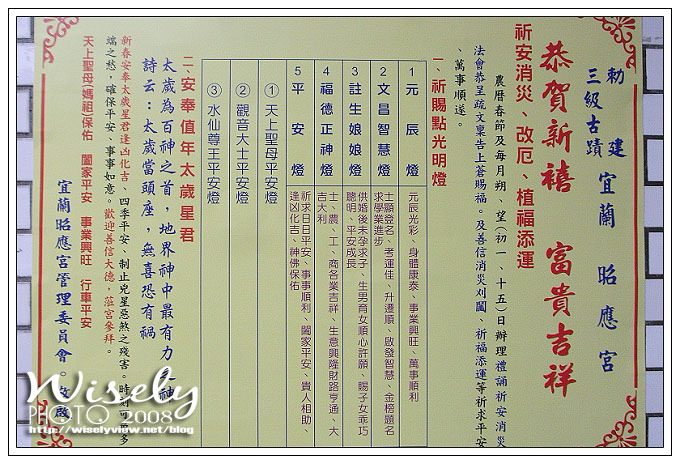 勅建 宜蘭 昭應宮
三級古蹟
恭賀新禧 富貴吉祥
祈安消災、改厄、植福添運
農曆春節及每月朔、望(初一、十五)日辦理禮誦祈安消災
法會恭呈疏文稟告上蒼賜福。及善信消災刈鬮、祈福添運等祈求平安
、萬事順遂。
一、祈賜點光明燈
1 元辰燈 元辰光彩、身體康泰、事業興旺、萬事順利
2 文昌智慧燈 士顯登名、考運佳、升遷順、啟發智慧、金榜題名
求學業進步
3 註生娘娘燈 供婚後未孕求子、生男育女順心許願、賜子女乖巧
聰明、平安成長
4 福德正神燈 士、農、工、商各業吉祥、生意興隆財路亨通、大
吉大利
5 平安燈 祈求日日平安、事事順利、闔家平安、貴人相助、
逢凶化吉、神佛保佑
① 天上聖母平安燈
② 觀音大士平安燈
③ 水仙尊王平安燈
二、安奉值年太歲星君
太歲為百神之首，地界神中最有力之神
詩云：太歲當頭座，無喜恐有禍
新春安奉太歲星君逢凶化吉、四季平安、制止兇星惡煞之殘害。時刻
端之愁，確保平安、事事如意。歡迎善信大德，蒞宮參拜。
天上聖母(媽祖)保佑 闔家平安 事業興旺 行車平安
宜蘭昭應宮管理委員會。敬啟
Wisely
PHOTO 2008
http://wiselyview.net/blog